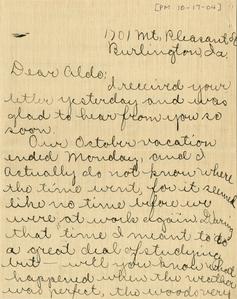 [PM 10-17-04]
1701 Mt. Pleasant St
Burlington, Ia
Dear Aldo:
I received your
letter yesterday and was
glad to hear from you so
soon.
Our October vacation
ended Monday, and I
actually do not know where
the time went, for it seemed
like no time before we
were at work again. During
that time I meant to do
a great deal of studying
but — well you know what
happened when the weather
was perfect, the woods were